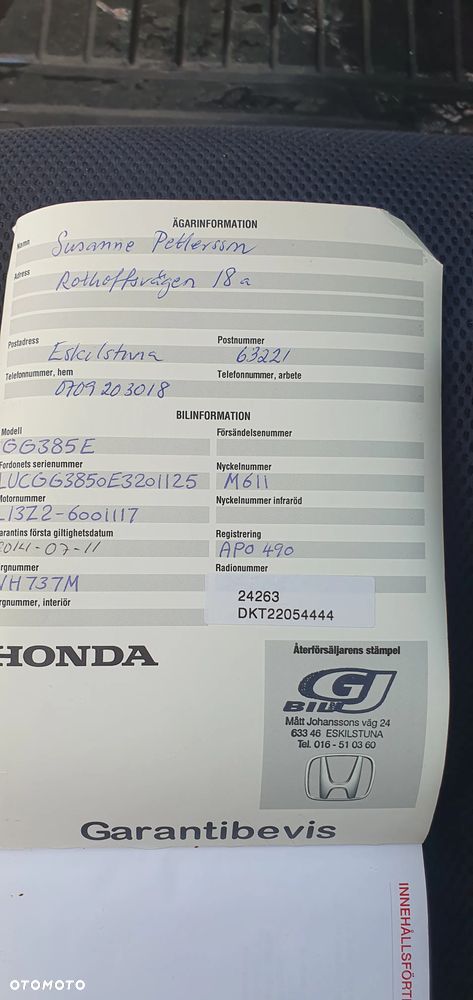 ÄGARINFORMATION
Namn Susanne Pettersson
Adress Rothoffsvägen 18 a
Postadress Postnummer
Eskilstuna 63221
Telefonnummer, hem Telefonnummer, arbete
0709203018
BILINFORMATION
Modell Försändelsenummer
GG385E
Fordonets serienummer Nyckelnummer
LUCGG3850E3201125 M611
Motornummer Nyckelnummer infraröd
L13Z2-6001117
Garantins första giltighetsdatum Registrering
2014-07-11 APO 490
ärgnummer Radionummer
VH737M
ärgnummer, interiör
24263
DKT22054444
HONDA
Återförsäljarens stämpel
GJ
BIL
Mått Johanssons väg 24
633 46 ESKILSTUNA
Tel. 016 - 51 03 60
Garantibevis
INNEHÅLLSFÖRT
OTOMOTO